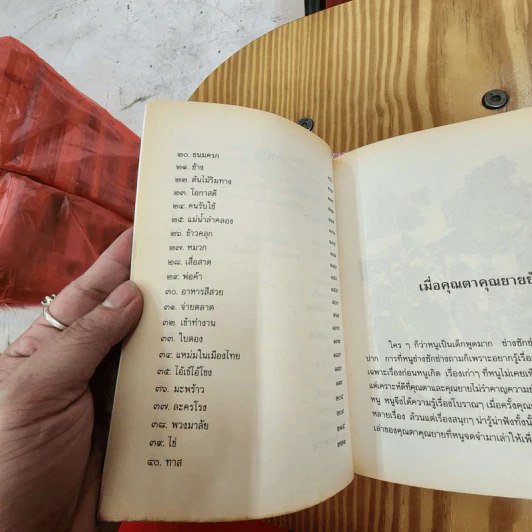 ๒๐. ขนมครก
๒๑. ช้าง
๒๒. ต้นไม้ริมทาง
๒๓. โอกาสดี
๒๔. คนรับใช้
๒๕. แม่น้ำลำคลอง
๒๖. ข้าวคลุก
๒๗. หมวก
๒๘. เสื่อสาด
๒๙. พ่อค้า
๓๐. อาหารสีสวย
๓๑. จ่ายตลาด
๓๒. เช้าทำงาน
๓๓. ใบตอง
๓๔. แหม่มในเมืองไทย
๓๕. โอ้เอ้โอ้โฮง
๓๖. มะพร้าว
๓๗. ละครโรง
๓๘. พวงมาลัย
๓๙. ไข่
๔๐. ทาส
เมื่อคุณตาคุณยายยั
ใคร ๆ ก็ว่าหนูเป็นเด็กพูดมาก ช่างซัก
ปาก การที่หนูช่างซักช่างถามก็เพราะอยากรู้เรื่อง
เฉพาะเรื่องก่อนหนูเกิด เรื่องเก่าๆ ที่หนูไม่เคยเห็
แต่เคราะห์ดีที่คุณตาและคุณยายไม่รำคาญความ
หนู หนูจึงได้ความรู้เรื่องโบราณๆ เมื่อครั้งคุณ
หลายเรื่อง ล้วนแต่เรื่องสนุกๆ น่ารู้น่าฟังทั้งนั้
เล่าของคุณตาคุณยายที่หนูจดจำมาเล่าให้เพื่